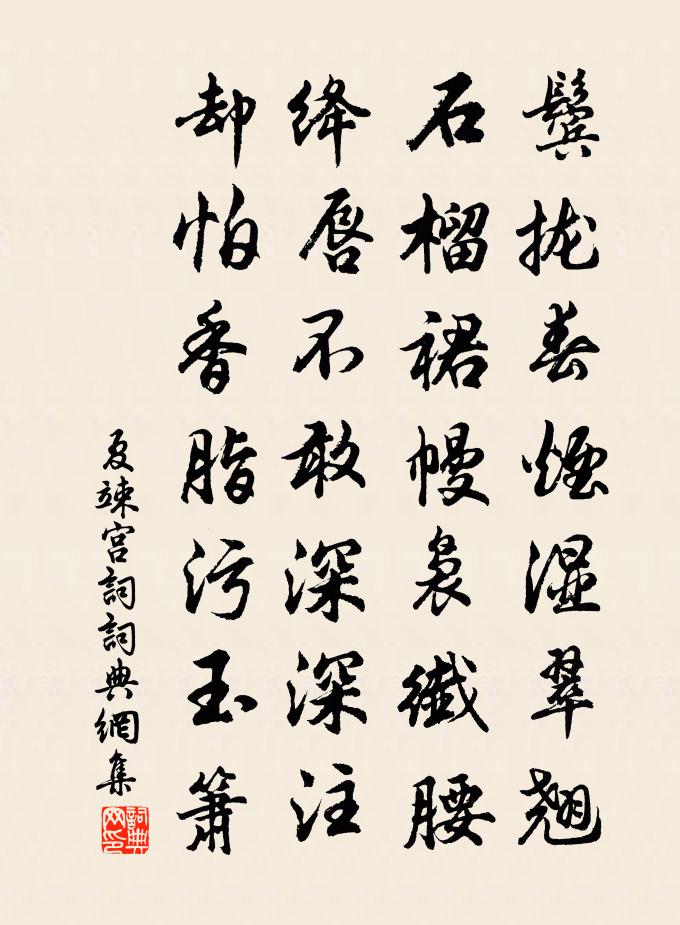 鬓拢春烟湿翠翘
石榴裙幔袅纤腰
绛唇不敢深深注
却怕香脂污玉箫
夏竦宫词词典網集
詞典网印